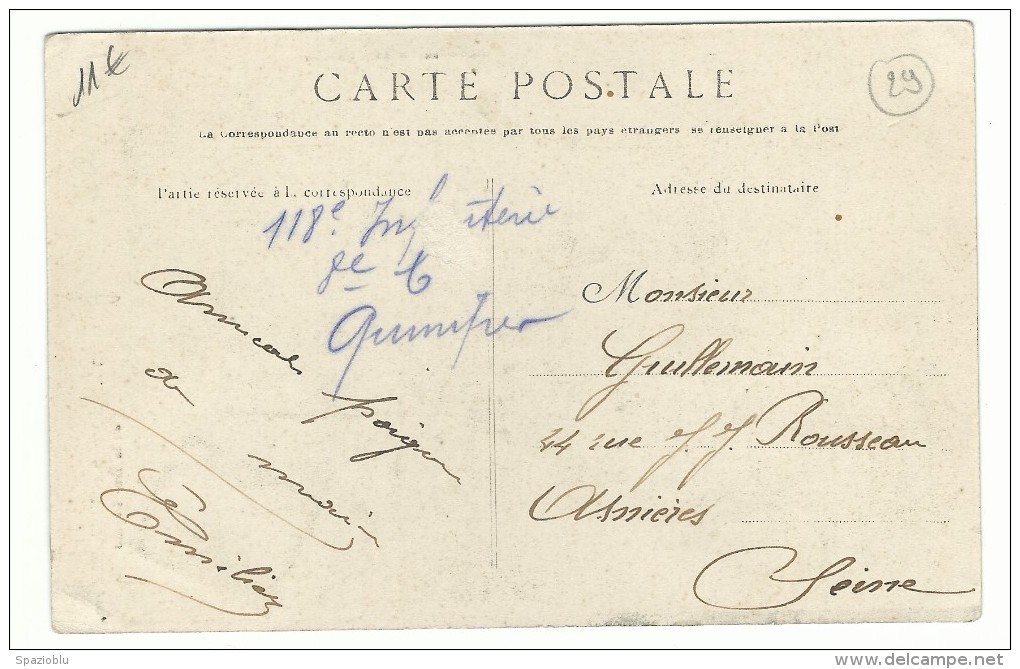 11€
29
CARTE POSTALE
La Correspondance au recto n'est pas acceptée par tous les pays étrangers se renseigner à la Post
Partie réservée à la correspondance
Adresse du destinataire
118e Infanterie
8e C
Quimper
Amicale poignée
de main
Emilien
Monsieur
Guillemain
44 rue J. J. Rousseau
Asnières
Seine
Spazioblu
www.delcampe.net